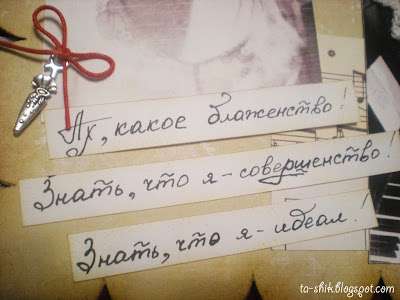 Ах, какое блаженство!
Знать, что я - совершенство!
Знать, что я - идеал!
ta-shik.blogspot.com